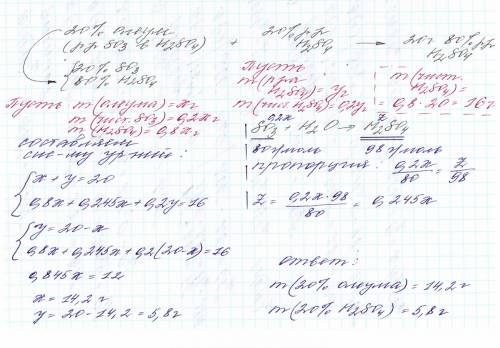 20% олеум + 20% р-р H₂SO₄ → 20г 80% р-р H₂SO₄
(р-р SO₃ в H₂SO₄)
{20% SO₃
80% H₂SO₄
Пусть m(олеума) = xг
m(чист. SO₃) = 0,2xг
m(H₂SO₄) = 0,8xг
Пусть
m(р-ра H₂SO₄) = yг
m(чист. H₂SO₄) = 0,2yг
m(чист. H₂SO₄) = 0,8·20 = 16г
0,2x z
SO₃ + H₂O → H₂SO₄
80 г/моль 98 г/моль
пропорция: 0,2x/80 = z/98
z = 0,2x·98/80 = 0,245x
составляем
сис-му ур-ний:
{x + y = 20
0,8x + 0,245x + 0,2y = 16
{y = 20 - x
0,8x + 0,245x + 0,2(20-x) = 16
0,845x = 12
x = 14,2 г
y = 20 - 14,2 = 5,8г
ответ:
m(20% олеума) = 14,2г
m(20% H₂SO₄) = 5,8г